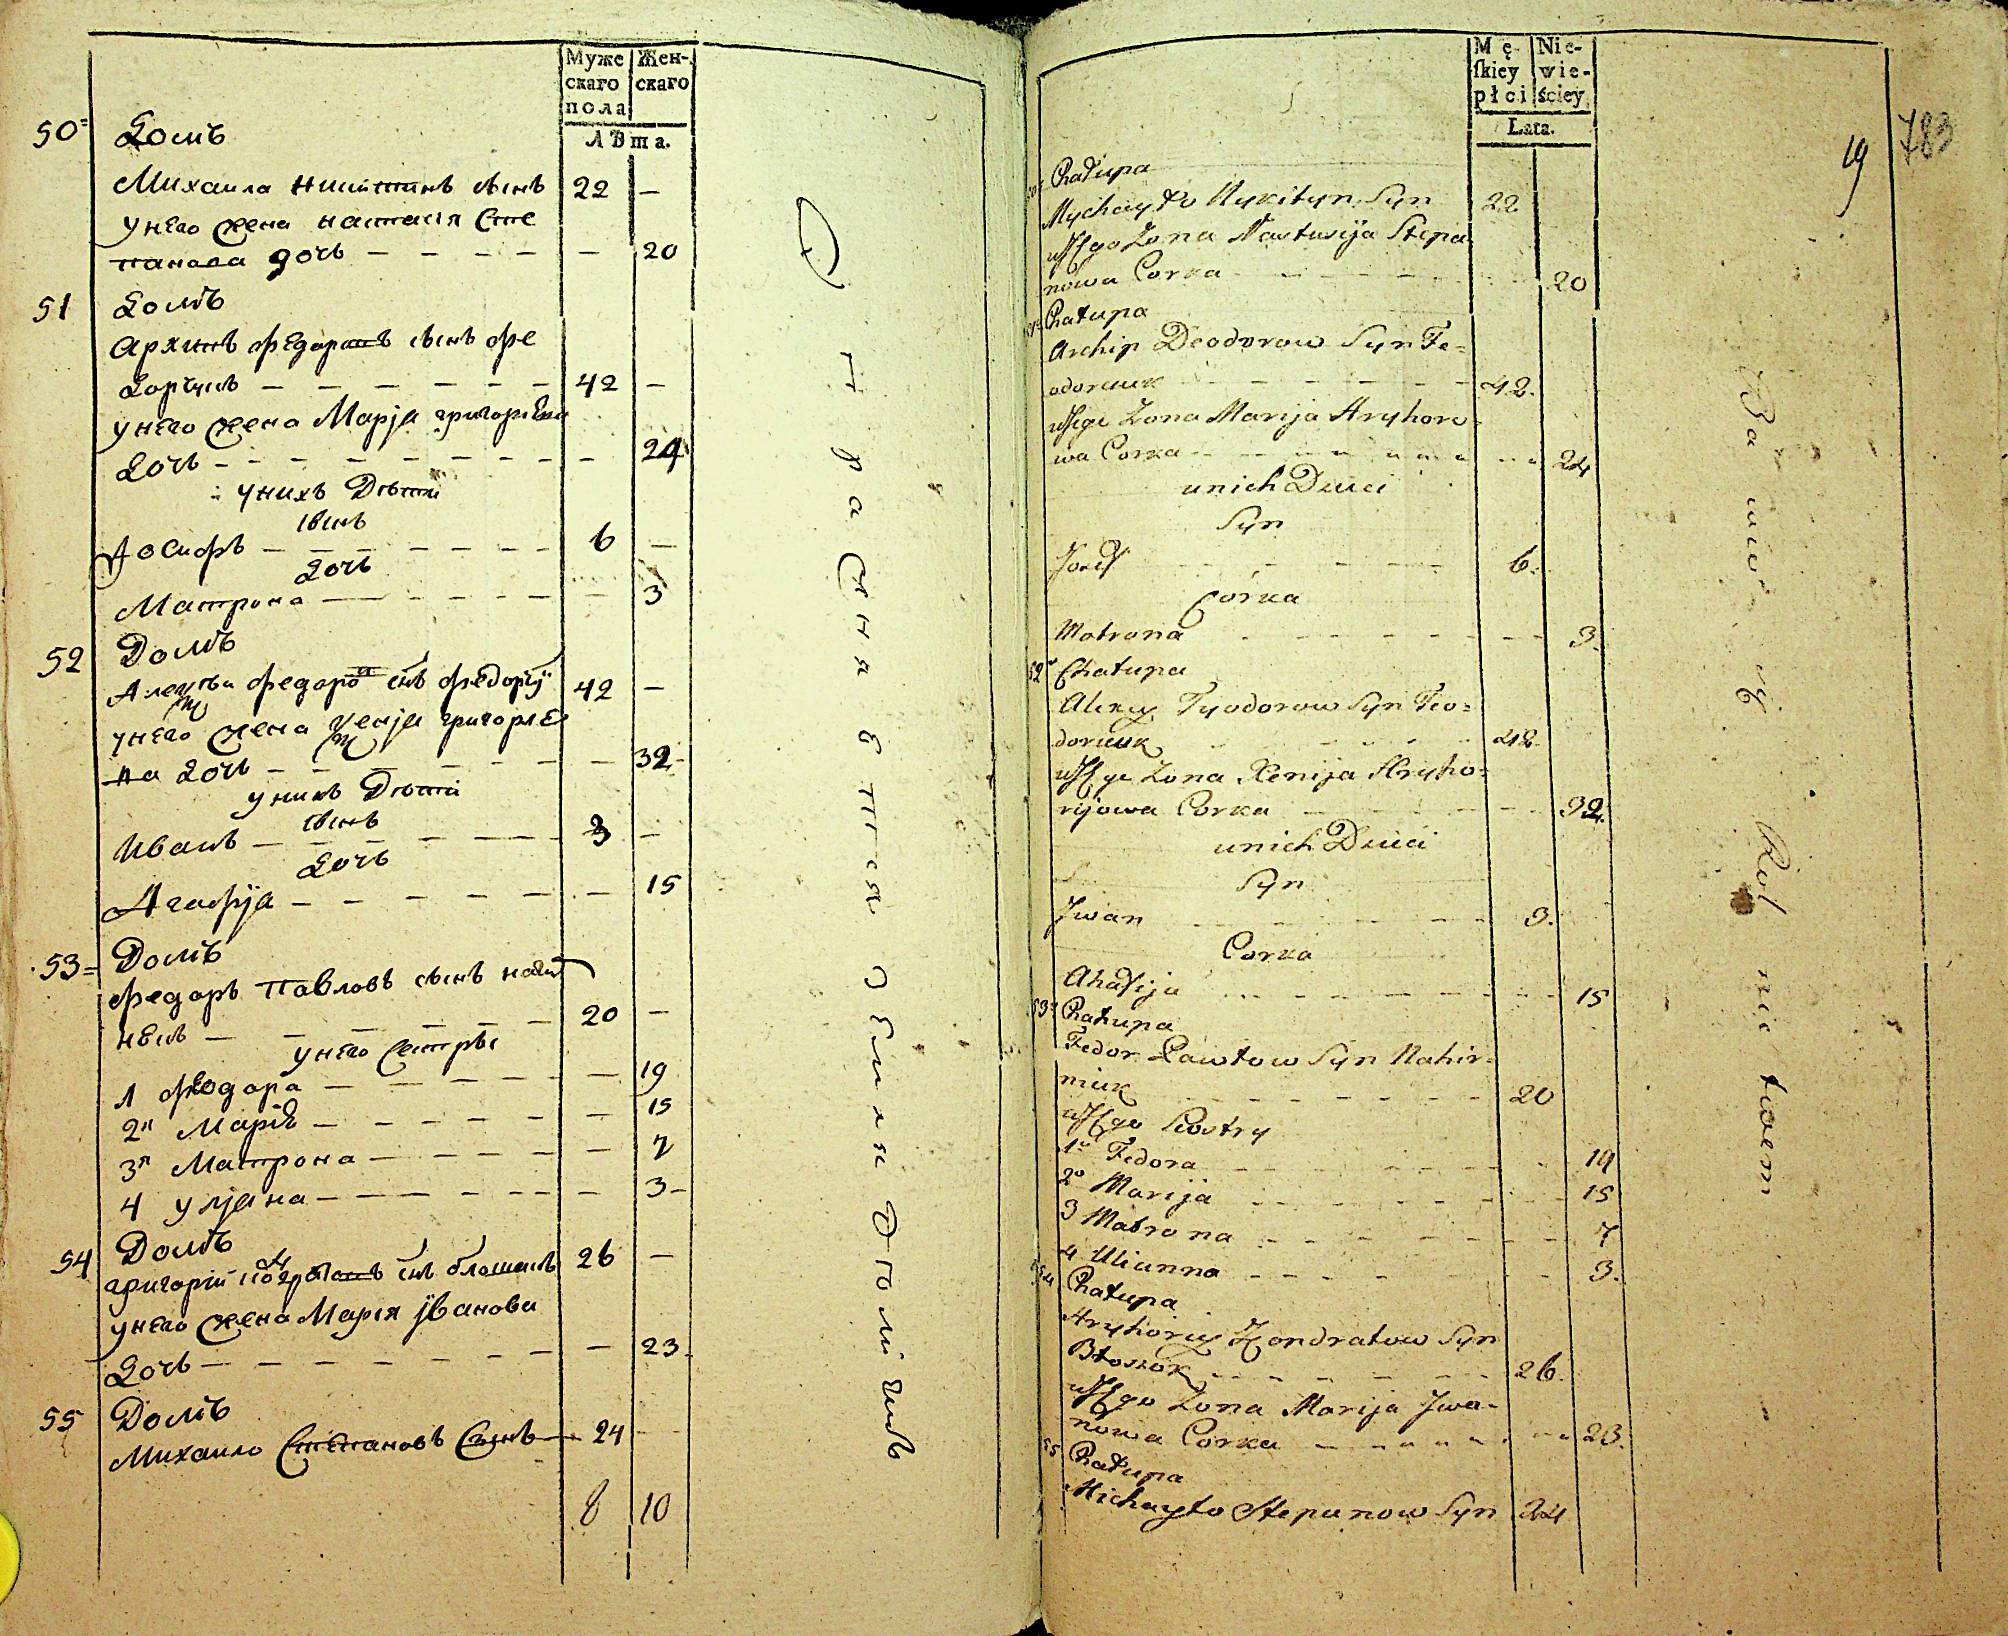 Муже Жен-
скаго скаго
пола
Лѣта.
50 Домъ
Михаила Никитинъ сынъ 22 —
у него жена Настасія Сте
панова дочь - - - - - 20
51 Домъ
Архипъ Федоровъ сынъ Фе
дорчукъ - - - - - - 42 —
у него жена Марія Григоріева
дочь - - - - - - - - 24
у нихъ дѣти
сынъ
Іосифъ - - - - - - - 6 —
дочь
Матрона - - - - - - 3
52 Домъ
Алексѣй Федоровъ снъ Федорчу 42 —
у него жена Ксенія Григоріе
ва дочь - - - - - - - 32
у нихъ дѣти
сынъ
Иванъ - - - - - - - 3 —
дочь
Агафія - - - - - - 15
53 Домъ
Федоръ Павловъ сынъ
20 —
у него сестры
1 Феодора - - - - - - 19
2я Марія - - - - - - 15
3я Матрона - - - - - - 7
4 Уліана - - - - - - 3
54 Домъ
Григорій Кондратовъ снъ 26 —
у него жена Марія Иванова
дочь - - - - - - - - 23
55 Домъ
Михаило Степановъ сынъ — 24
8 10
Mę- Nie-
ſkiey wie-
płci ściey
Lata.
19
783
Chałupa
Mychayło Nykityn Syn 22
u Nego Żona Nastusija Stepa
nowa Corka - - - - - - 20
Chałupa
Archip Deodorow Syn Fe=
odorczuk - - - - - - - 42.
u Nego Żona Marija Hryhoro
wa Corka - - - - - - - 24
u nich Dzieci
Syn
Jozef - - - - - - 6.
Córka
Matrona - - - - - - 3.
52 Chałupa
Alexy Fyodorow Syn Feo=
dorczuk - - - - - - 42.
u Nego Żona Xenija Hryho=
rijowa Corka - - - - - - 32.
u nich Dzieci
Syn
Jwan - - - - - - 3.
Corka
Ahafija - - - - - - - 15
53 Chałupa
Fedor Pawłow Syn Nahir-
niuk - - - - - - - 20
u Nego Siostry
1a Fedora - - - - - - - 19
2a Marija - - - - - - - 15
3 Matrona - - - - - - - 7
4 Ulianna - - - - - - - 3.
54 Chałupa
Hryhoriy Kondratow Syn
Błoszok - - - - - - - 26.
u Nego Żona Marija Jwa-
nowa Corka - - - - - - 23.
55 Chałupa
Michayło Stepanow Syn 24